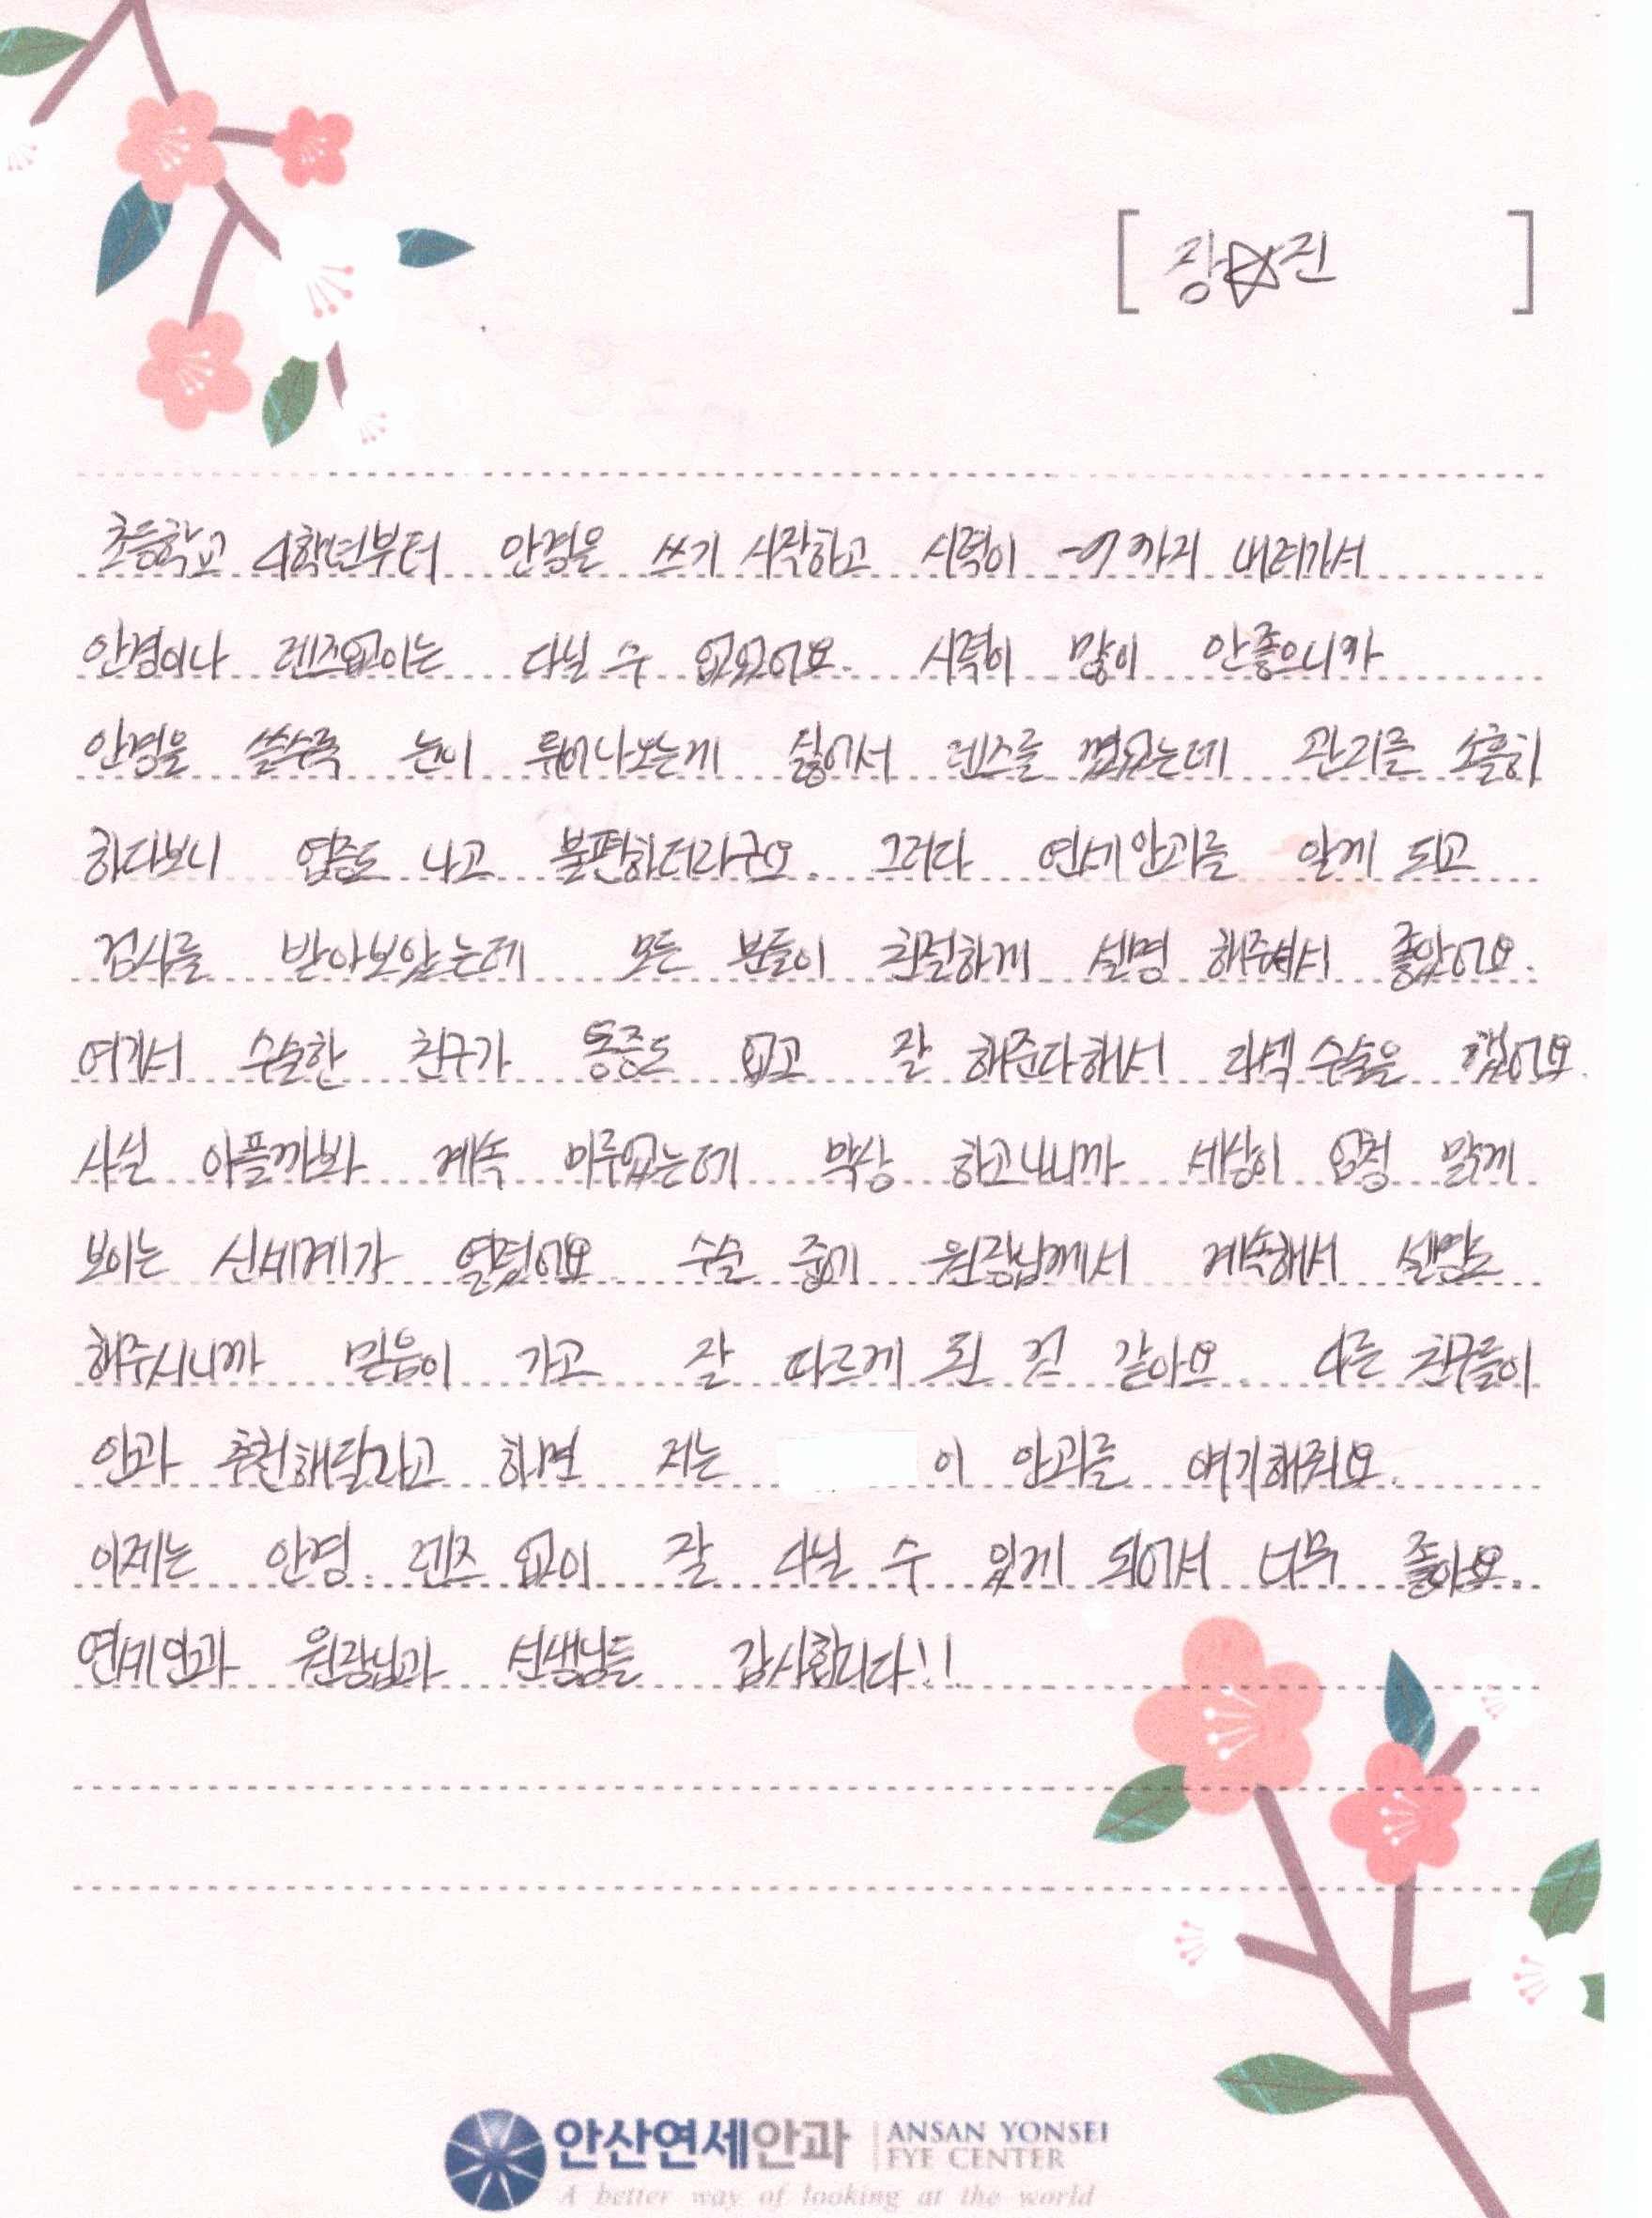 [ 장☆진 ]
초등학교 4학년부터 안경을 쓰기 시작하고 시력이 -9까지 내려가서
안경이나 렌즈없이는 다닐 수 없었어요. 시력이 많이 안좋으니까
안경을 쓸수록 눈이 튀어나오는게 싫어서 렌즈를 꼈었는데 관리를 소홀히
하다보니 염증도 나고 불편하더라구요. 그러다 연세안과를 알게 되고
검사를 받아보았는데 모든 분들이 친절하게 설명 해주셔서 좋았어요.
여기서 수술한 친구가 통증도 없고 잘 해준다해서 라섹수술을 했어요.
사실 아플까봐 계속 미루었는데 막상 하고나니까 세상이 엄청 맑게
보이는 신세계가 열렸어요. 수술 중에 원장님께서 계속해서 설명도
해주시니까 믿음이 가고 잘 따르게 된 것 같아요. 다른 친구들이
안과 추천해달라고 하면 저는 이 안과를 얘기해줘요.
이제는 안경, 렌즈 없이 잘 다닐 수 있게 되어서 너무 좋아요.
연세안과 원장님과 선생님들 감사합니다!!
안산연세안과 | ANSAN YONSEI
EYE CENTER
A better way of looking at the world